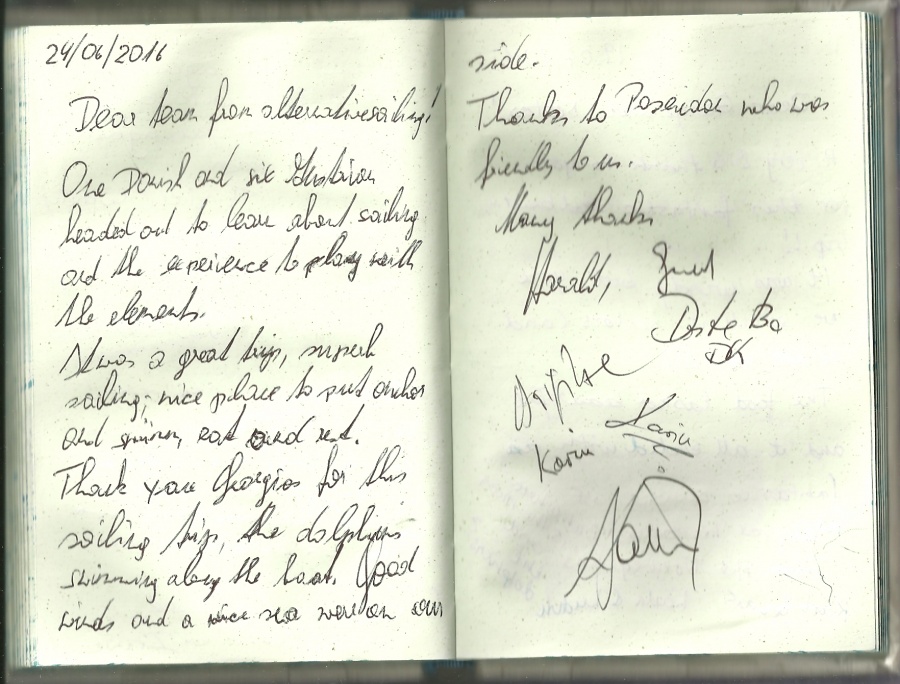 24/06/2016
Dear team from alternativesailing!
One Danish and six Austrian
headed out to learn about sailing
and the experience to play with
the elements.
It was a great trip, superb
sailing, nice place to put anchor
and swimm, eat and rest.
Thank you Georgios for this
sailing trip, the dolphins
swimming along the boat. Good
winds and a nice sea were on our
side.
Thanks to Poseidon who was
friendly to us.
Many thanks
Harald,
DK
Karin
Karin